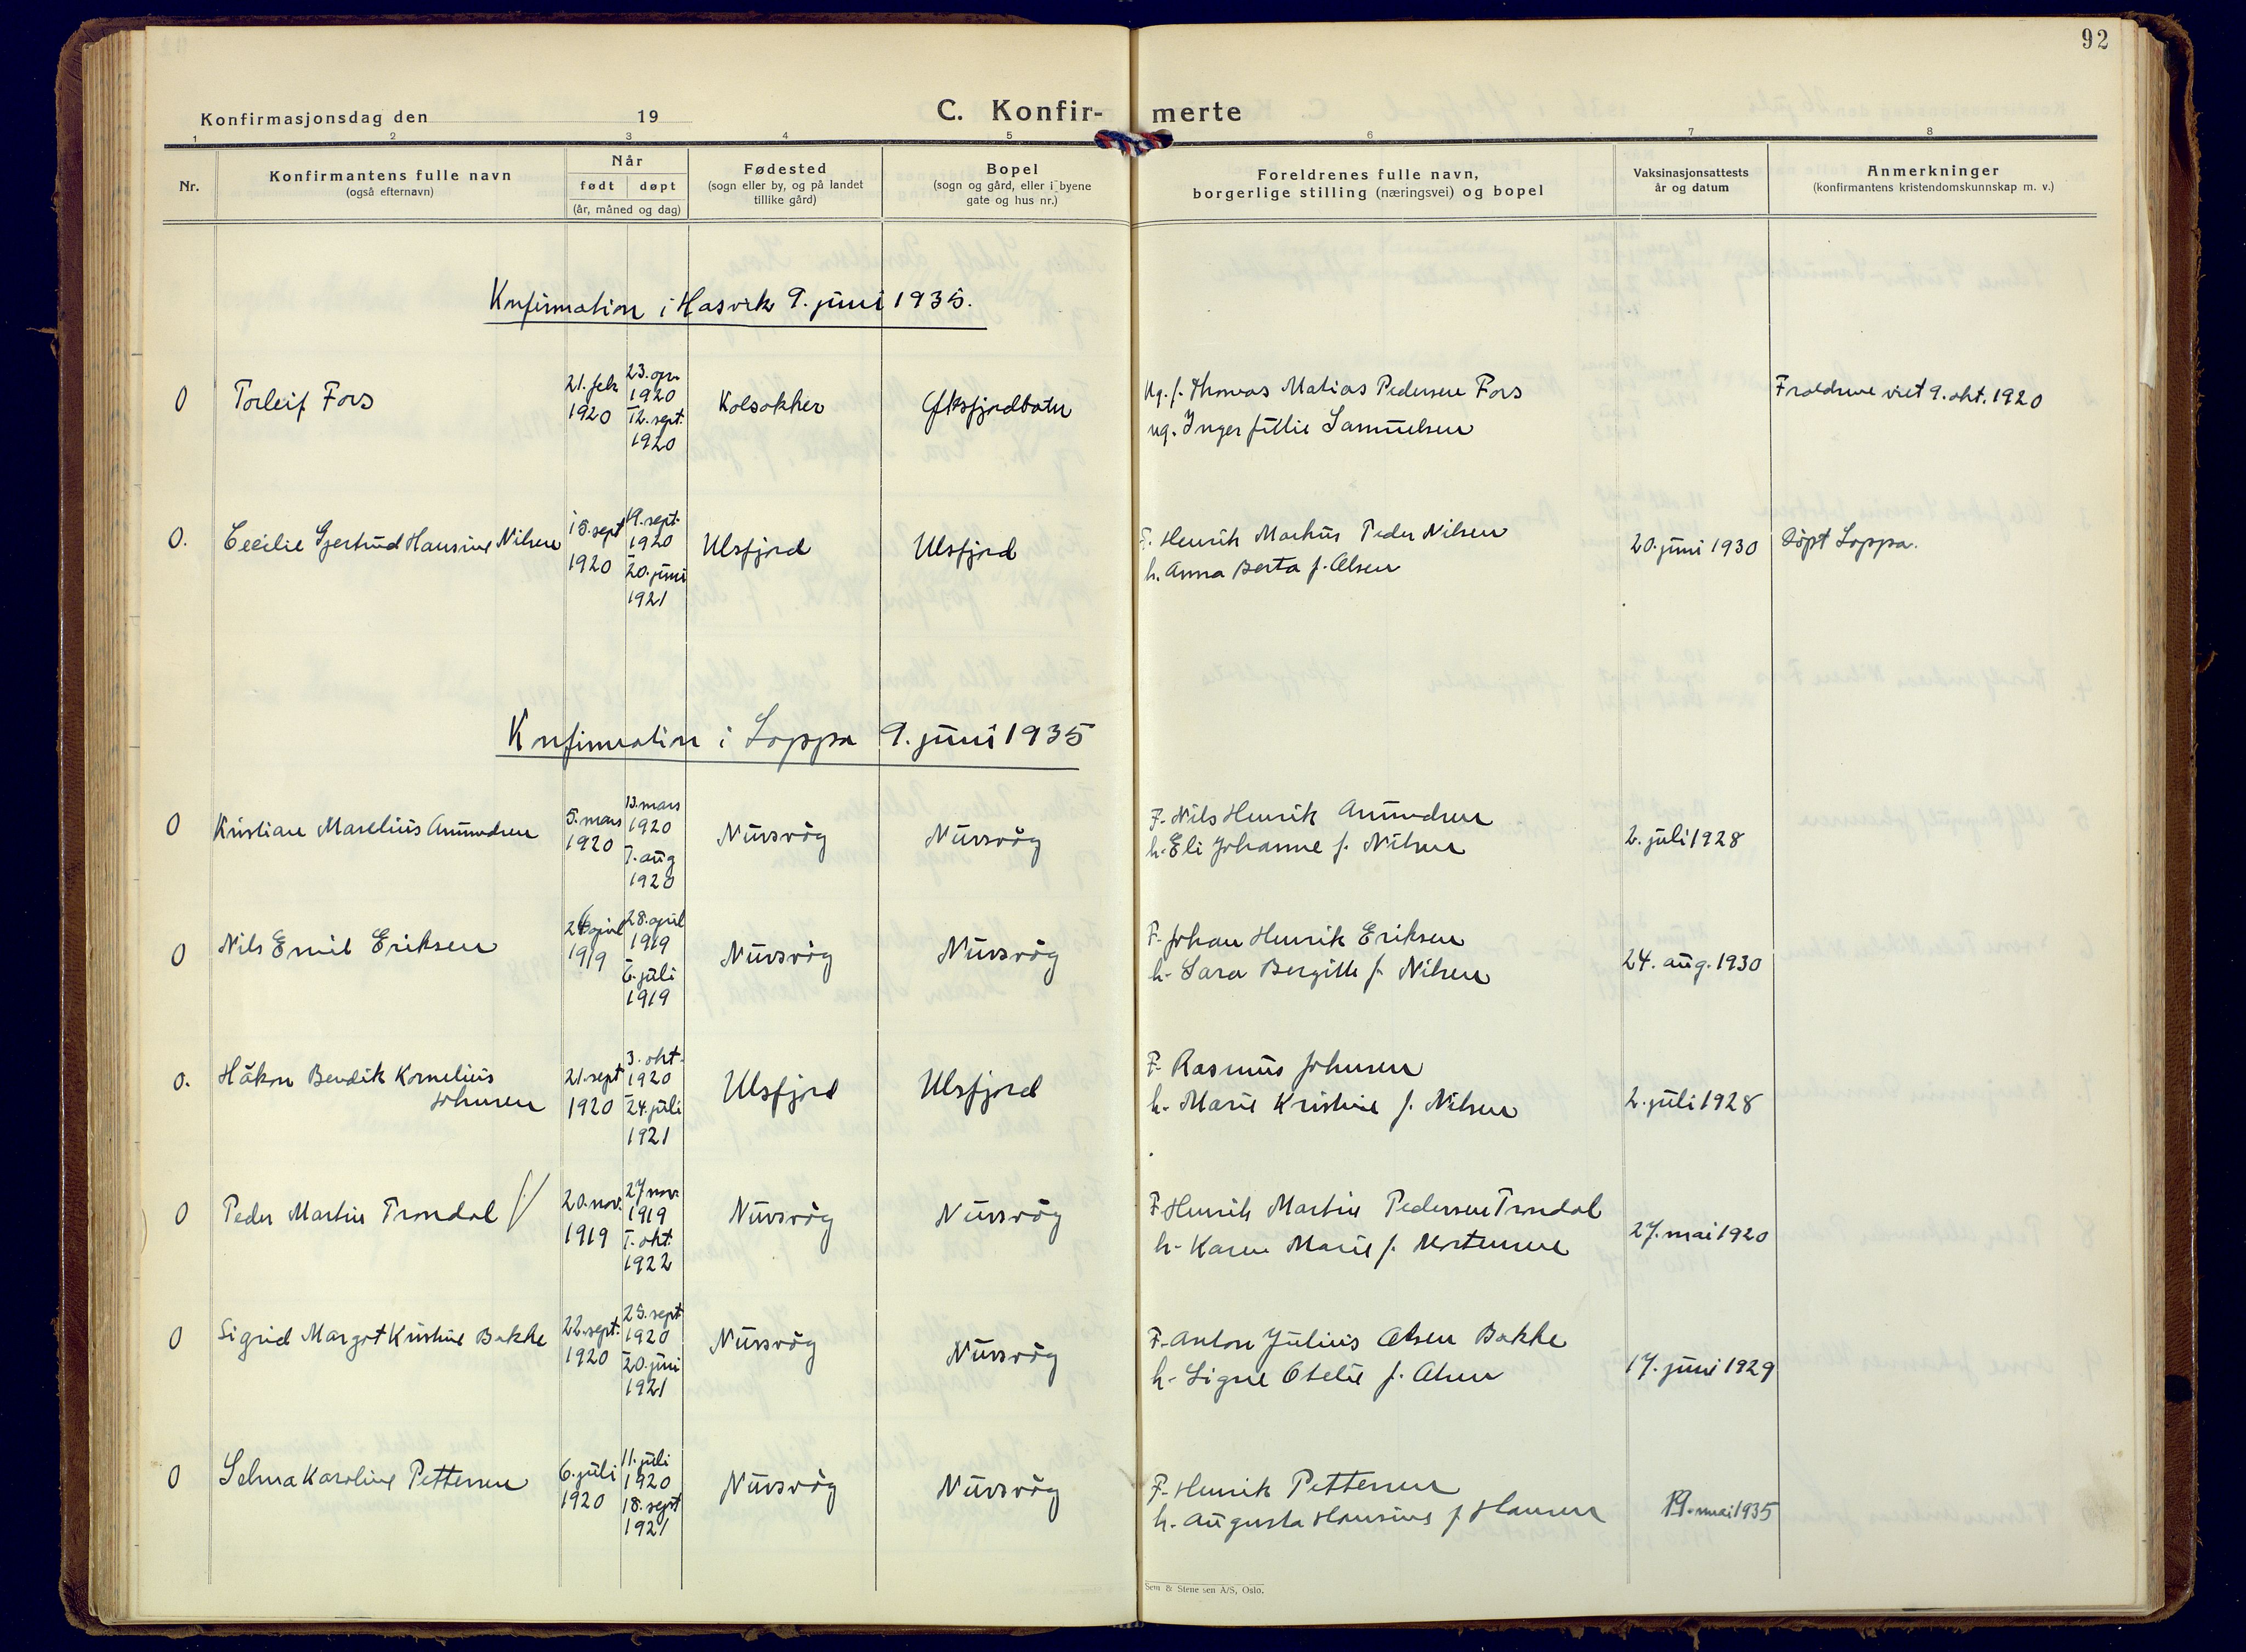 92
Konfirmasjonsdag den 19
C. Konfir- merte
1 2 3 4 5 6 7 8
Nr.
Konfirmantens fulle navn
(også efternavn)
Når
født døpt
(år, måned og dag)
Fødested
(sogn eller by, og på landet
tillike gård)
Bopel
(sogn og gård, eller i byene
gate og hus nr.)
Foreldrenes fulle navn,
borgerlige stilling (næringsvei) og bopel
Vaksinasjonsattests
år og datum
Anmerkninger
(konfirmantens kristendomskunnskap m. v.)
Konfirmation i Hasvik 9. juni 1935.
0 Torleif Fors
21. feb
1920
23. apr.
1920
12. sept.
1920
Kolsakher
Ug. f. Thomas Matias Pedersen Fors
ug. Inger Jillie Samuelsen
viet 9. okt. 1920
0. Cecilie Gjertrud Hansine Nilsen
15. sept
1920
19. sept.
1920
20. juni
1921
Ulsfjord
Ulsfjord
F. Henrik Markus Peder Nilsen
h. Anna Berta f. Olsen
20. juni 1930
Døpt Loppa.
Konfirmation i Loppa 9. juni 1935
0 Kristian Marelius Amundsen
5. mars
1920
13. mars
1920
7. aug
1920
Nuvsvåg
Nuvsvåg
F. Nils Henrik Amundsen
h. Eli Johanne f. Nilsen
2. juli 1928
0 Nils Emil Eriksen
april
1919
28. april
1919
6. juli
1919
Nuvsvåg
Nuvsvåg
F. Johan Henrik Eriksen
h. Sara Bergitte f. Nilsen
24. aug. 1930
0. Håkon Bendik Kornelius
Johnsen
21. sept
1920
3. okt.
1920
24. juli
1921
Ulsfjord
Ulsfjord
F. Rasmus Johnsen
h. Marie Kristine f. Nilsen
2. juli 1928
0 Peder Martin Trondal
20. nov.
1919
27 nov.
1919
1. okt.
1922
Nuvsvåg
Nuvsvåg
F. Henrik Martin Pedersen Trondal
h. Karen Marie f. Mortensen
27. mai 1920
0 Sigrid Margot Kristine Bakke
22. sept.
1920
25. sept.
1920
20. juni
1921
Nuvsvåg
Nuvsvåg
F. Anton Julius Olsen Bakke
h. Signe Otelie f. Olsen
17. juni 1929
0 Selma Karoline Pettersen
6. juli
1920
11. juli
1920
18. sept
1921
Nuvsvåg
Nuvsvåg
F. Henrik Pettersen
h. Augusta Hansine f. Hansen
19. mai 1935
Sem & Stenersen A/S, Oslo.